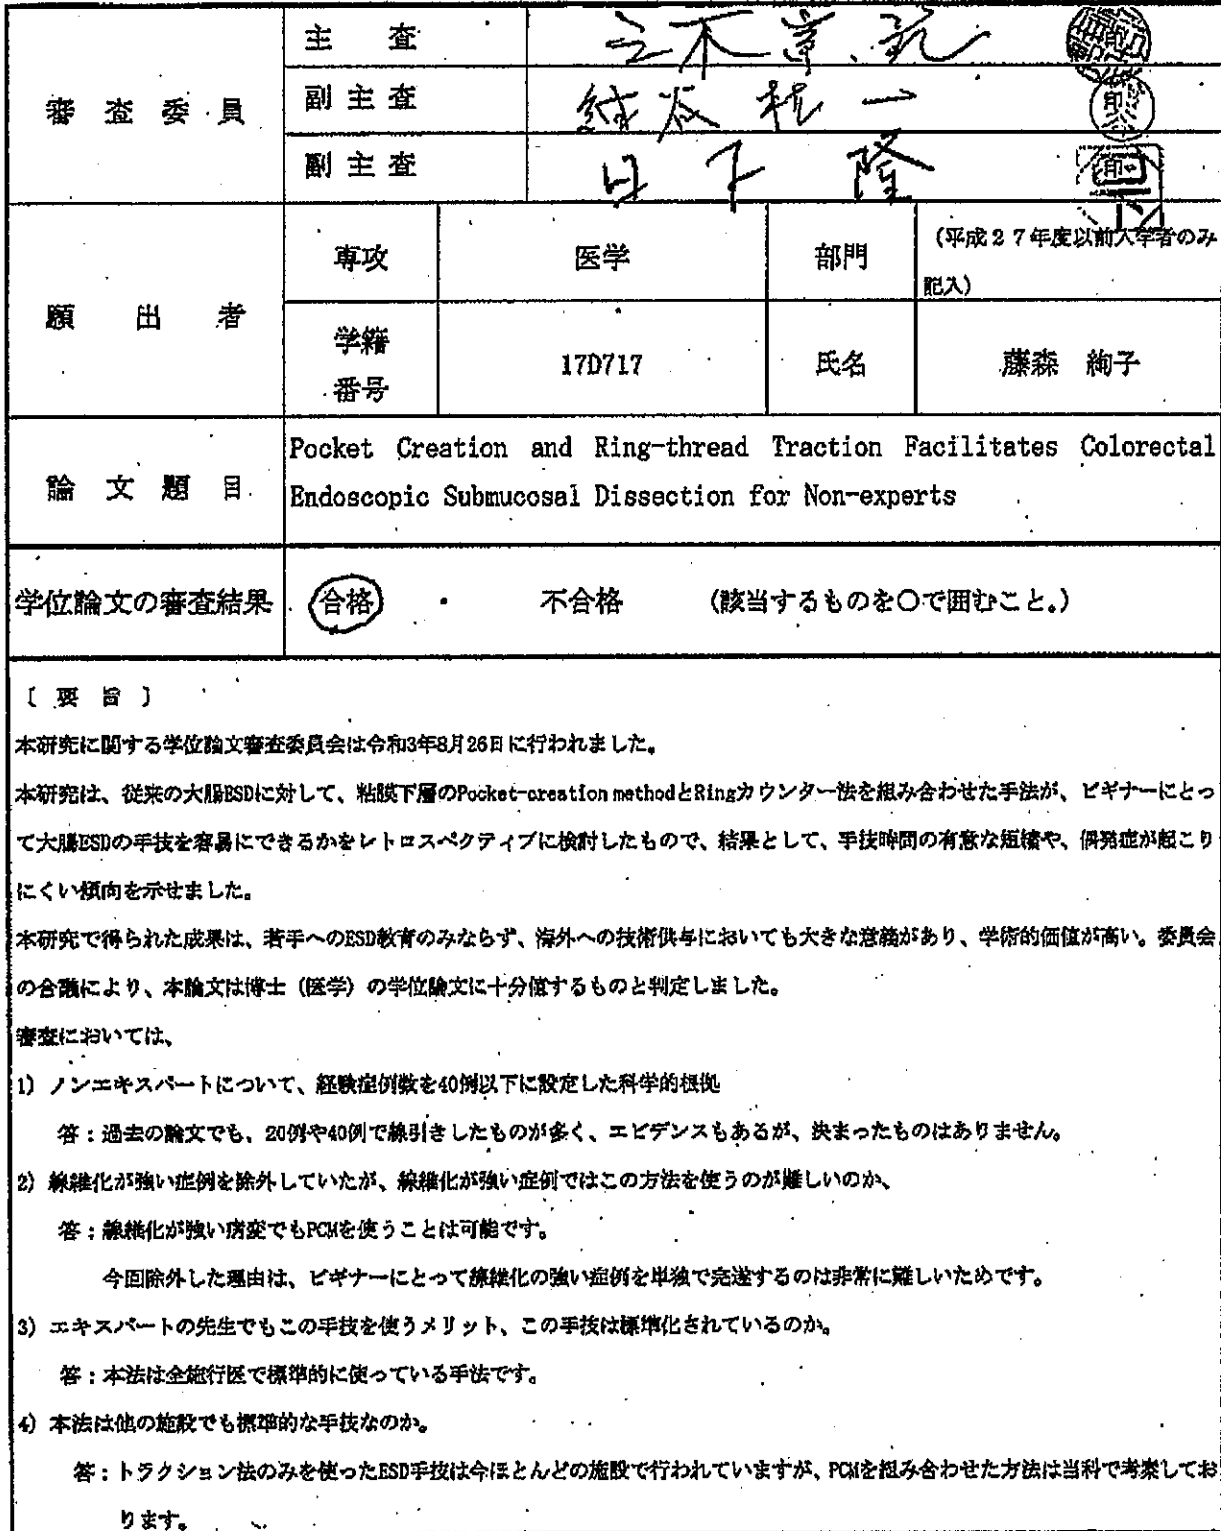 審査委員
主査
副主査
印
副主査
日下 隆
印
願出者
専攻 医学 部門 (平成27年度以前入学者のみ
記入)
学籍
番号
17D717 氏名 藤森 絢子
論文題目
Pocket Creation and Ring-thread Traction Facilitates Colorectal
Endoscopic Submucosal Dissection for Non-experts
学位論文の審査結果 合格 ・ 不合格 (該当するものを○で囲むこと。)
〔要旨〕
本研究に関する学位論文審査委員会は令和3年8月26日に行われました。
本研究は、従来の大腸ESDに対して、粘膜下層のPocket-creation methodとRingカウンター法を組み合わせた手法が、ビギナーにとっ
て大腸ESDの手技を容易にできるかをレトロスペクティブに検討したもので、結果として、手技時間の有意な短縮や、偶発症が起こり
にくい傾向を示せました。
本研究で得られた成果は、若手へのESD教育のみならず、海外への技術供与においても大きな意義があり、学術的価値が高い。委員会
の合議により、本論文は博士（医学）の学位論文に十分値するものと判定しました。
審査においては、
1）ノンエキスパートについて、経験症例数を40例以下に設定した科学的根拠
答：過去の論文でも、20例や40例で線引きしたものが多く、エビデンスもあるが、決まったものはありません。
2）線維化が強い症例を除外していたが、線維化が強い症例ではこの方法を使うのが難しいのか、
答：線維化が強い病変でもPCMを使うことは可能です。
今回除外した理由は、ビギナーにとって線維化の強い症例を単独で完遂するのは非常に難しいためです。
3）エキスパートの先生でもこの手技を使うメリット、この手技は標準化されているのか。
答：本法は全施行医で標準的に使っている手法です。
4）本法は他の施設でも標準的な手技なのか。
答：トラクション法のみを使ったESD手技は今ほとんどの施設で行われていますが、PCMを組み合わせた方法は当科で考案してお
ります。